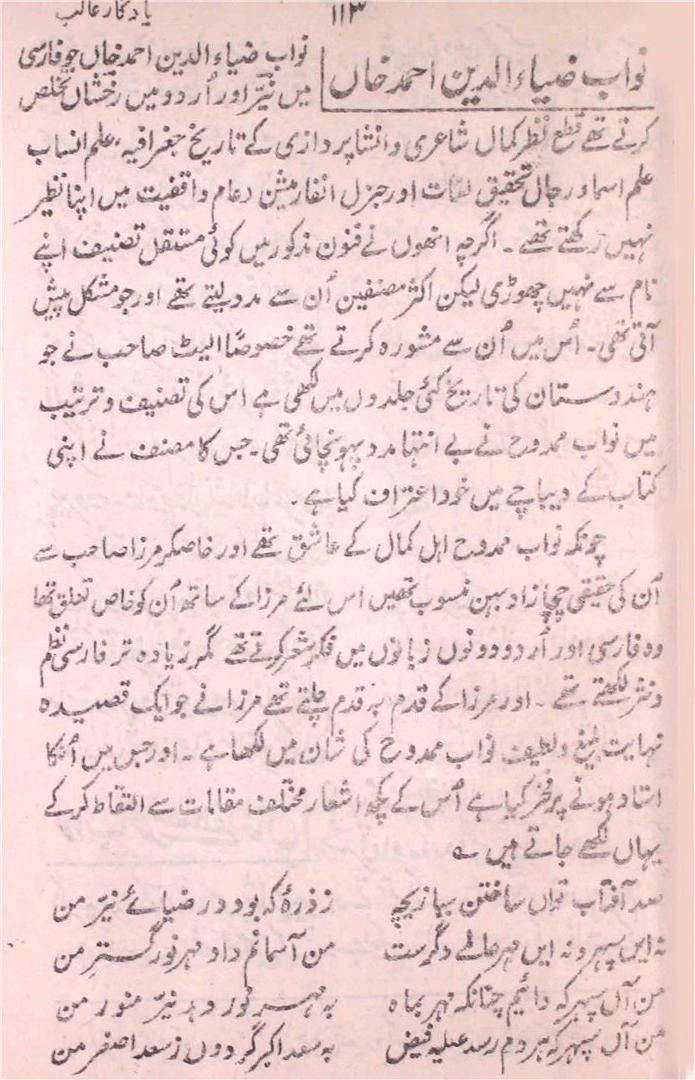 ۱۱۳
یادگار غالب
نواب ضیاء الدین احمد خاں
نواب ضیاء الدین احمد خاں جو فارسی
میں نیّر اور اُردو میں رخشاں تخلص
کرتے تھے قطع نظر کمال شاعری و انشا پردازی کے تاریخ جغرافیہ، علم انساب
علم اسماء رجال تحقیق لغات اور جنرل انفارمیشن و عام واقفیت میں اپنا نظیر
نہیں رکھتے تھے ۔ اگرچہ انھوں نے فنون مذکور میں کوئی مستقل تصنیف اپنے
نام سے نہیں چھوڑی لیکن اکثر مصنفین اُن سے مدد لیتے تھے اور جو مشکل پیش
آتی تھی ۔ اُس میں اُن سے مشورہ کرتے تھے خصوصًا الیٹ صاحب نے جو
ہندوستان کی تاریخ کئی جلدوں میں لکھی ہے اس کی تصنیف و ترتیب
میں نواب ممدوح نے بے انتہا مدد پہونچائی تھی ۔ جس کا مصنف نے اپنی
کتاب کے دیباچے میں خود اعتراف کیا ہے ۔
چونکہ نواب ممدوح اہل کمال کے عاشق تھے اور خاصکر مرزا صاحب سے
اُن کی حقیقی چچا زاد بہن منسوب تھیں اس لئے مرزا کے ساتھ اُن کو خاص تعلق تھا
وہ فارسی اور اُردو دونوں زبانوں میں فکر شعر کرتے تھے مگر زیادہ تر فارسی نظم
و نثر لکھتے تھے ۔ اور مرزا کے قدم بہ قدم چلتے تھے مرزا نے جو ایک قصیدہ
نہایت بلیغ و لطیف نواب ممدوح کی شان میں لکھا ہے ۔ اور جس میں اُنکا
استاد ہونے پر فخر کیا ہے اُس کے کچھ اشعار مختلف مقامات سے التقاط کر کے
یہاں لکھے جاتے ہیں ؎
صد آفتاب تواں ساختن ببازیچہ زذرۂ کہ بود در ضیائے نیّر من
نہ ایں سپہر و نہ ایں مہر عالمے دگرست من آسمانم و او مہر نور گستر من
من آں سپہر کہ دائیم چنانکہ مہر بماہ بہ مہر نور دہد نیّر منور من
من آں سپہر کہ ہر دم رسد عطیہ فیض بہ سعد اکبر گردوں ز سعد اصغر من